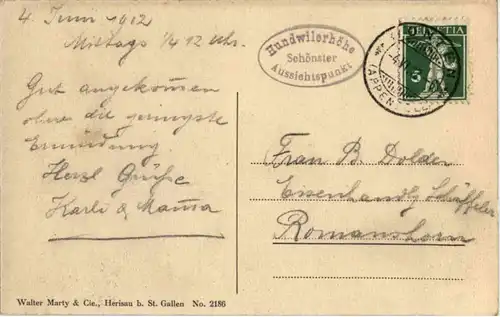 4. Juni 1912
Mittags 1/4 12 Uhr.
Gut angekommen
ohne die geringste
Ermüdung.
Herzl Grüße
Karli & Mama
Hundwilerhöhe
Schönster
Aussichtspunkt
HELVETIA
5
(APPENZELL)
Frau B. Dolder
Eisenhandlg Schäffeler
Romanshorn
Walter Marty & Cie., Herisau b. St. Gallen No. 2186